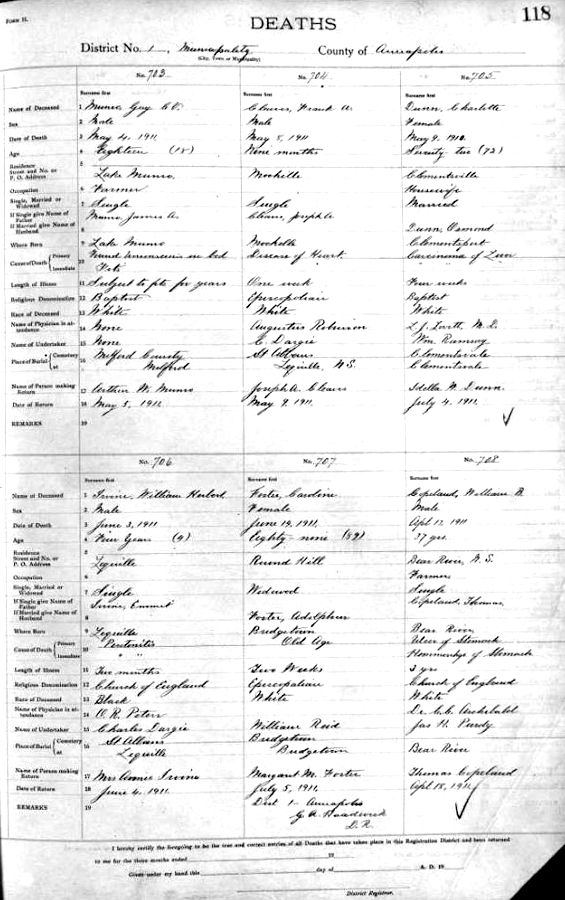 FORM H.
DEATHS
118
District No. 1, Municipality County of Annapolis
(City, Town or Municipality)
No. 703 No. 704 No. 705
Surname first Surname first Surname first
Name of Deceased 1 Munro, Guy Cleaves, Frank A. Dunn, Charlotte
Sex 2 Male Male Female
Date of Death 3 May 4, 1911 May 8, 1911 May 9, 1911
Age 4 Eighteen (18) Nine months Seventy two (72)
Residence
Street and No. or 5
P. O. Address Lake Munro Mochelle Clementsvale
Occupation 6 Farmer Housewife
Single, Married or
Widowed 7 Single Single Married
If Single give Name of
Father Munro, James A. Joseph A.
If Married give Name of 8
Husband Dunn, Osmond
Where Born 9 Lake Munro Mochelle Clementsport
Cause of Death Primary 10 Found unconscious in bed Disease of Heart Carcinoma of Liver
Immediate Fits
Length of Illness 11 Subject to fits for years One week Four weeks
Religious Denomination 12 Baptist Episcopalian Baptist
Race of Deceased 13 White White White
Name of Physician in at-
tendance 14 None Augustus Robinson L. J. Lovett M.D.
Name of Undertaker 15 None C. Dargie Wm Ramsay
Place of Burial Cemetery 16 Milford County St Albans Clementsvale
at Milford Lequille, N.S. Clementsvale
Name of Person making
Return 17 Arthur W. Munro Joseph A. Cleaves Idella N. Dunn
Date of Return 18 May 5, 1911 May 9, 1911 July 4, 1911
REMARKS 19
No. 706 No. 707 No. 708
Surname first Surname first Surname first
Name of Deceased 1 Irvine, William Herbert Foster, Caroline Copeland, William B.
Sex 2 Male Female Male
Date of Death 3 June 3, 1911 June 19, 1911 Apl 17, 1911
Age 4 Four Years (4) Eighty-nine (89) 37 yrs.
Residence
Street and No. or 5
P. O. Address Lequille Round Hill Bear River, N.S.
Occupation 6 Farmer
Single, Married or
Widowed 7 Single Widowed Single
If Single give Name of
Father Irvine, Emmet Copeland, Thomas
If Married give Name of 8
Husband Foster, Adolphus
Where Born 9 Lequille Bridgetown Bear River
Cause of Death Primary 10 Peritonitis Old Age Ulcer of Stomach
Immediate " " Hemmorhage of Stomach
Length of Illness 11 Two months Two Weeks 3 yrs
Religious Denomination 12 Church of England Episcopalian Church of England
Race of Deceased 13 Black White White
Name of Physician in at-
tendance 14 Dr. Archibald
Name of Undertaker 15 Charles Dargie William Reid Jas H. Purdy
Place of Burial Cemetery 16 St Albans Bridgetown
at Lequille Bridgetown Bear River
Name of Person making
Return 17 Mrs Annie Irvine Margaret M. Foster Thomas Copeland
Date of Return 18 June 4, 1911 July 5, 1911 Apl 18, 1911
REMARKS 19 Dist 1 - Annapolis
D.R.
I hereby certify the foregoing to be the true and correct entries of all Deaths that have taken place in this Registration District and been returned
to me for the three months ended 19
Given under my hand this day of A. D. 19
District Registrar.